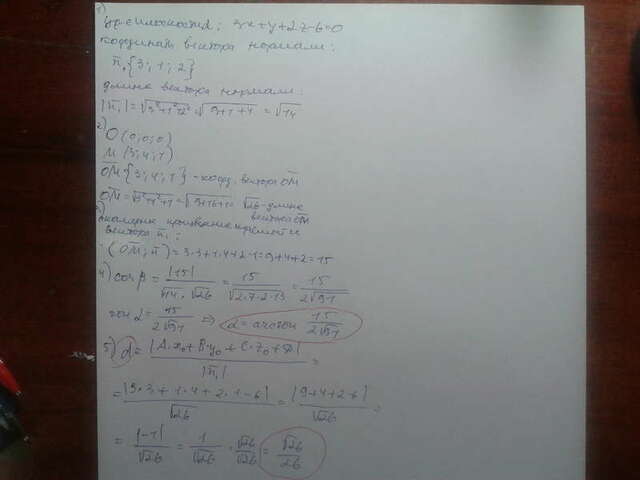 1)
ур. плоскости: 3x+y+2z-6=0
координаты вектора нормали:
n₁{3; 1; 2}
длина вектора нормали:
|n₁| = √3²+1²+2² = √9+1+4 = √14
2) O (0; 0; 0)
M (3; 4; 1)
OM {3; 4; 1} - коорд. вектора OM
OM = √3²+4²+1 = √9+16+1 = √26 - длина
вектора OM
3)
скалярное произведение
вектора n₁:
(OM; n) = 3·3+1·4+2·1=9+4+2=15
4) cos β = |15| / √14 · √26 = 15 / √2·7·2·13 = 15 / 2√91
α = 15 / 2√91 ⇒ α = 15 / 2√91
5) d = |A·x₀+B·y₀+C·z₀+D| / |n₁| =
= |3·3+1·4+2·1-6| / √26 = |9+4+2-6| / √26 =
= |-1| / √26 = 1 / √26 · √26 / √26 = √26 / 26